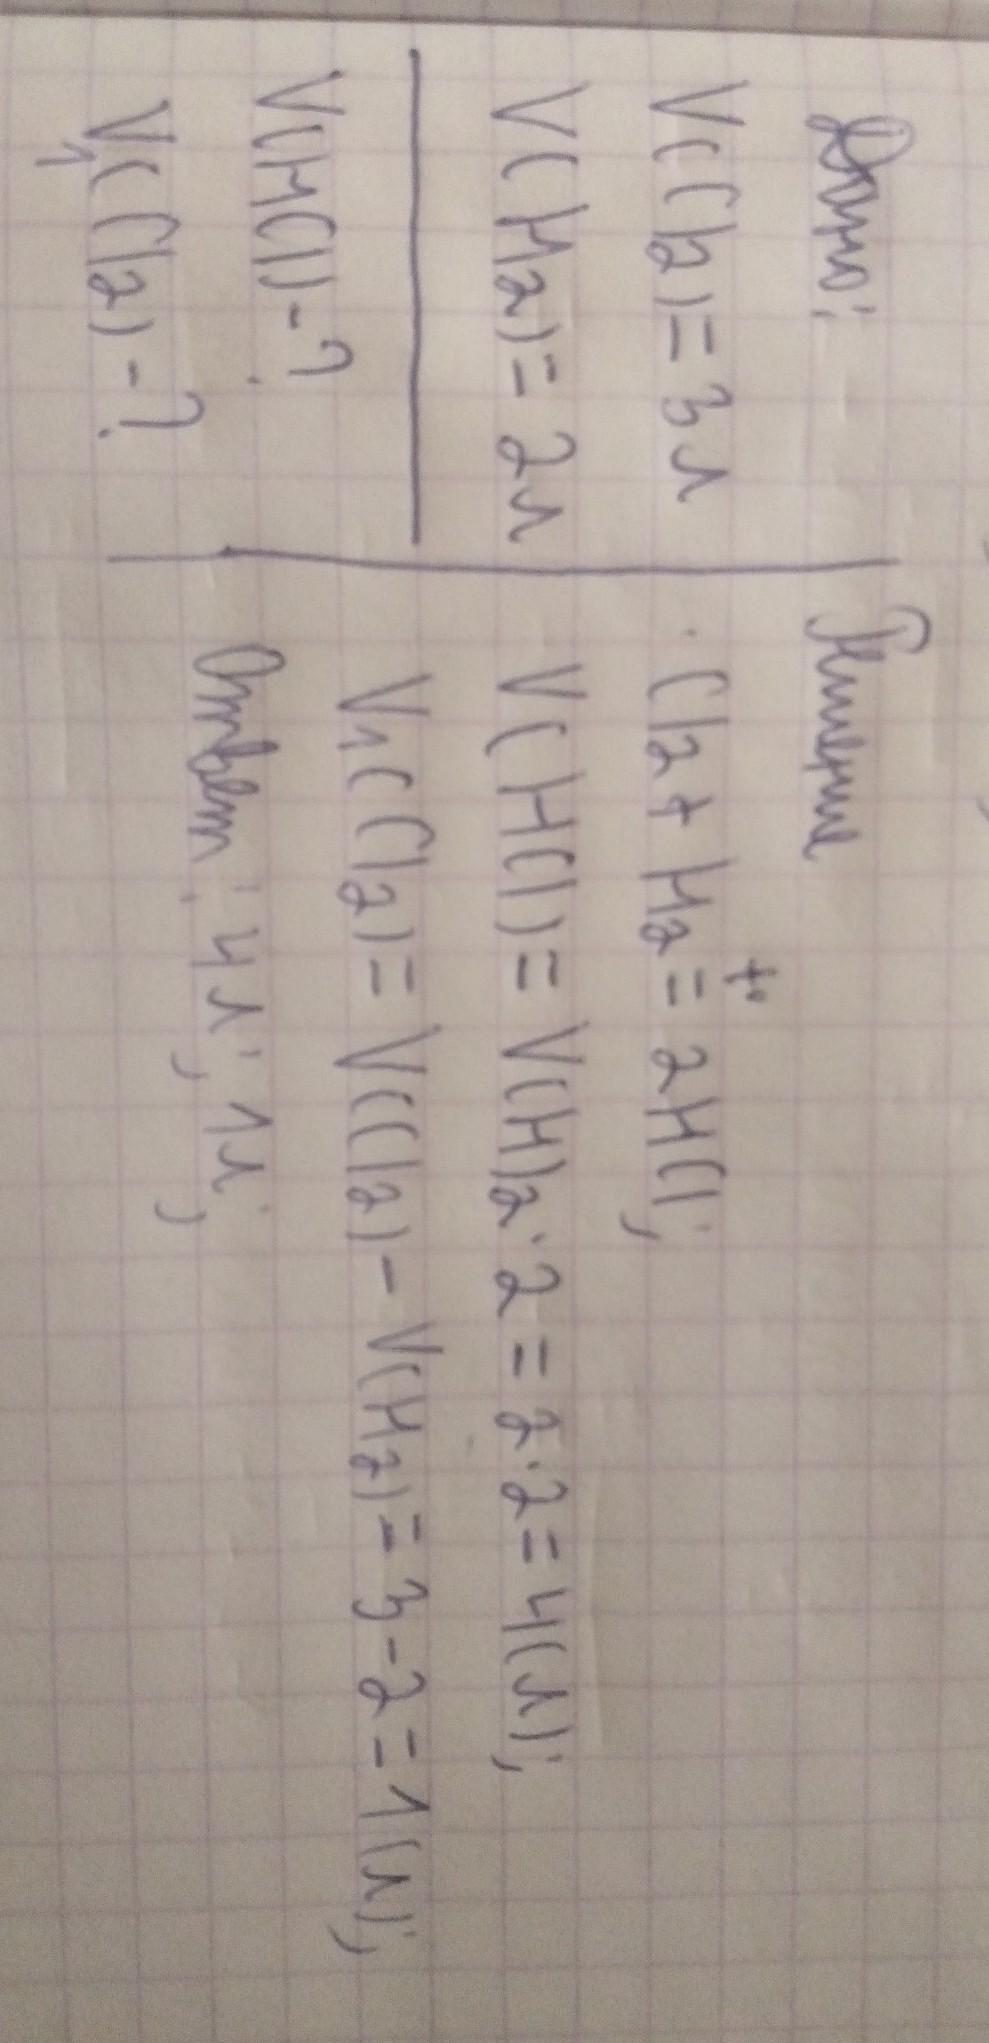 Дано:
V(Cl2) = 3л
V(H2) = 2л
V(HCl) - ?
V1(Cl2) - ?
Решение
Cl2 + H2 = t° 2HCl;
V(HCl) = V(H)2 · 2 = 2 · 2 = 4(л);
V1(Cl2) = V(Cl2) - V(H2) = 3 - 2 = 1(л);
Ответ: 4л; 1л;